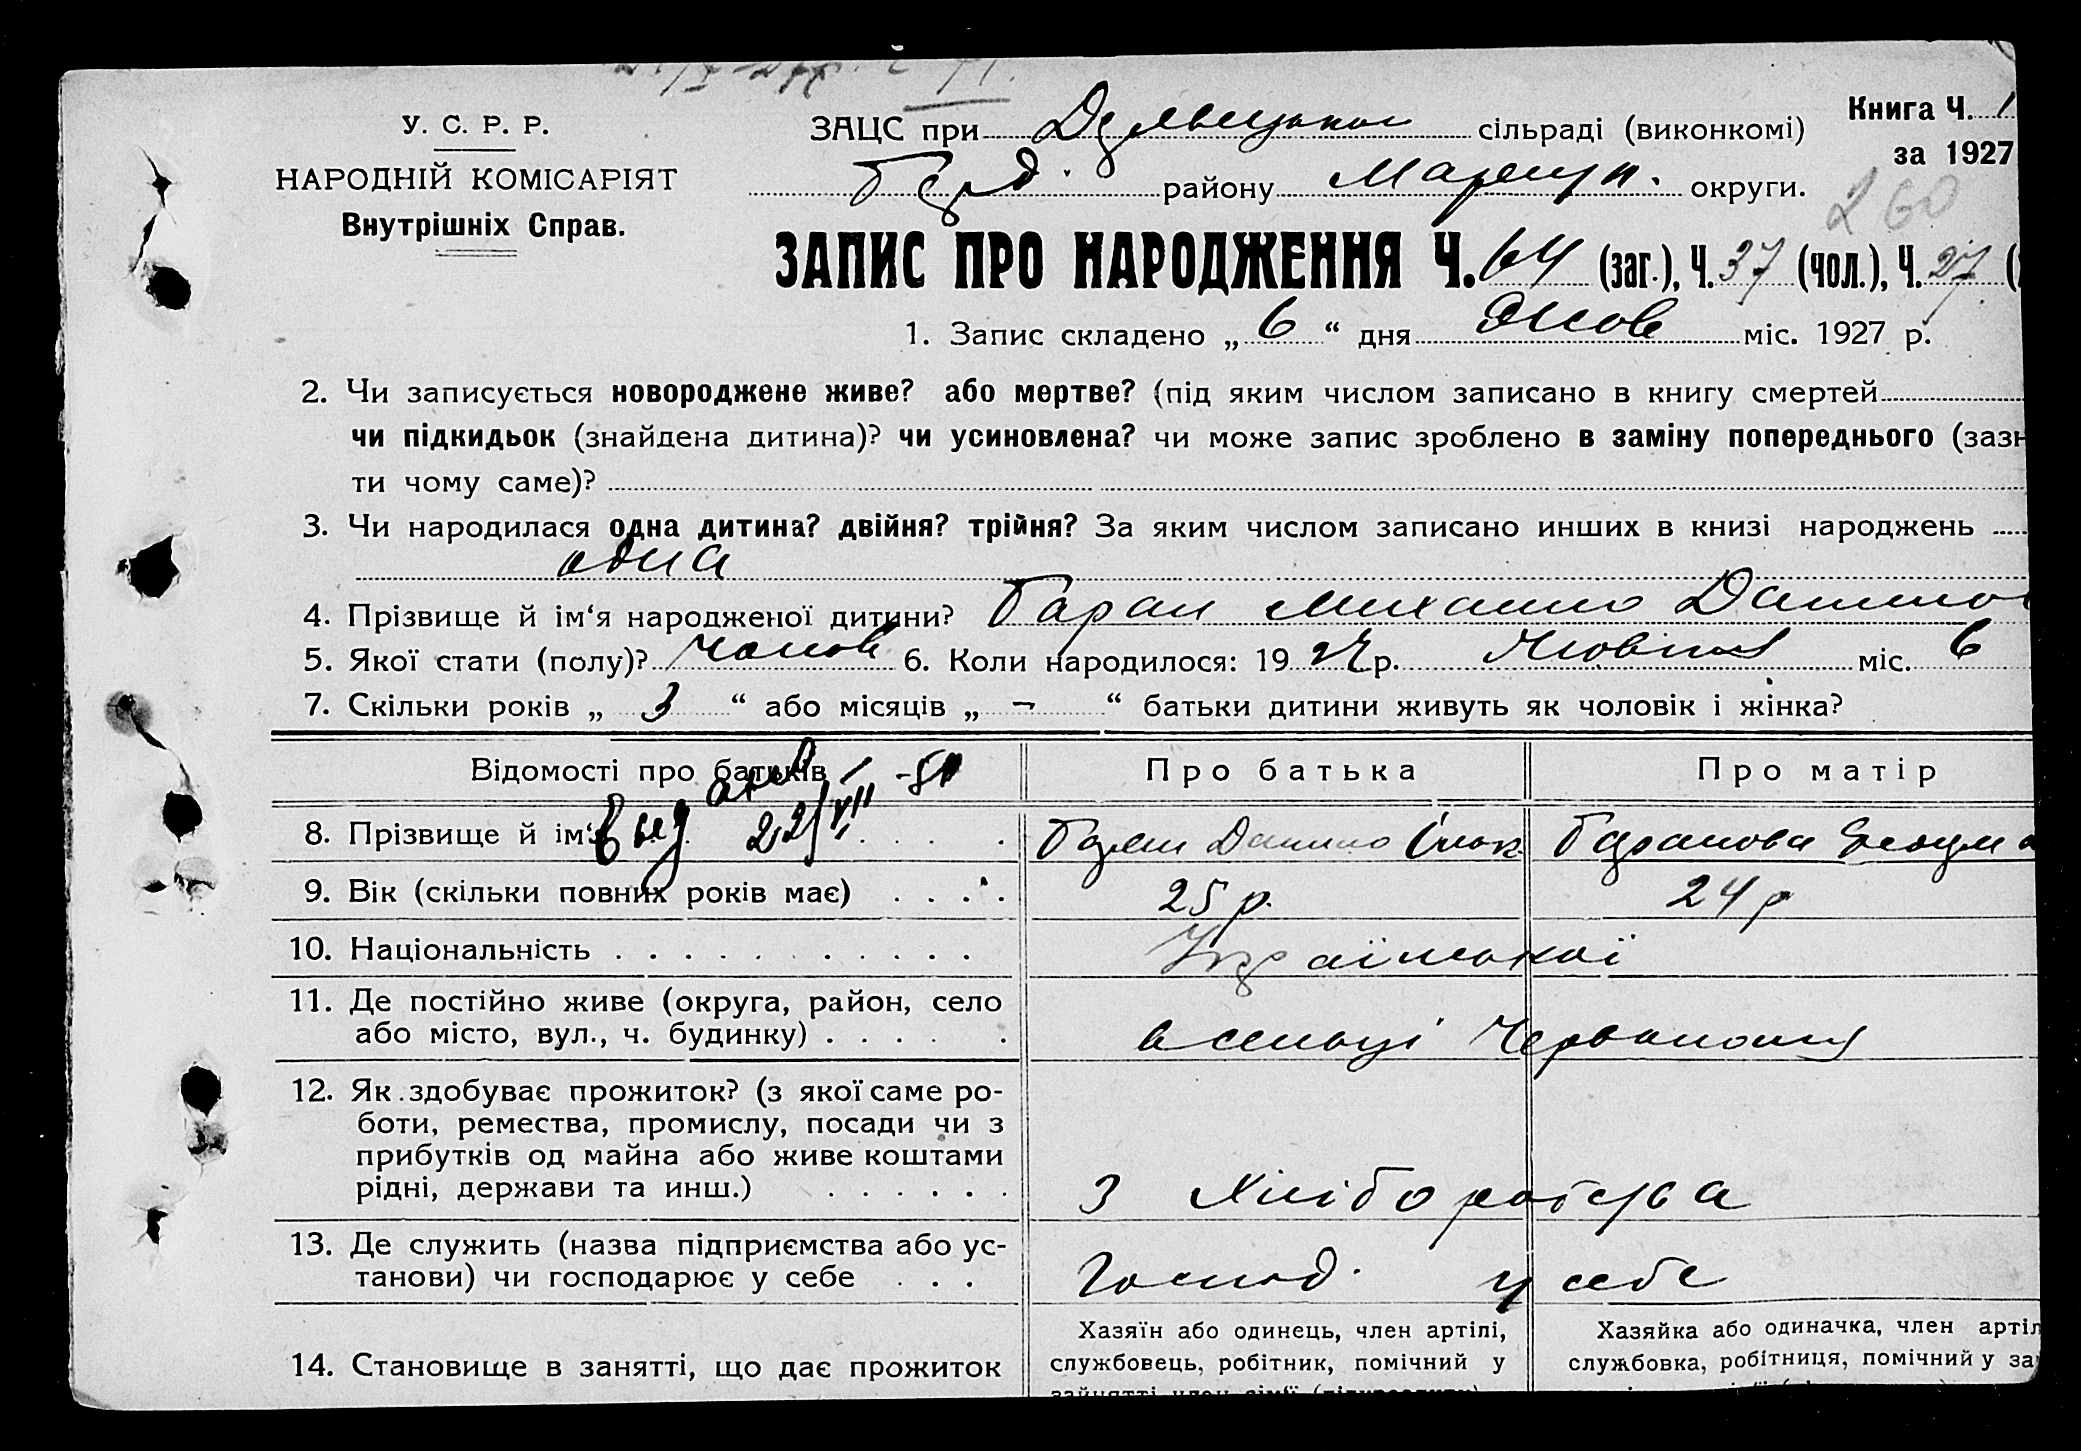 У. С. Р. Р.
НАРОДНІЙ КОМІСАРІЯТ
Внутрішніх Справ.
Книга Ч. 1
за 1927
ЗАЦС при сільраді (виконкомі)
району Маріуп. округи.
260
ЗАПИС ПРО НАРОДЖЕННЯ Ч. 64 (заг.), Ч. 37 (чол.), Ч. 27 (
1. Запис складено „ 6 “ дня Жов міс. 1927 р.
2. Чи записується новороджене живе? або мертве? (під яким числом записано в книгу смертей
чи підкидьок (знайдена дитина)? чи усиновлена? чи може запис зроблено в заміну попереднього (зазн
ти чому саме)?
3. Чи народилася одна дитина? двійня? трійня? За яким числом записано инших в книзі народжень
одна
4. Прізвище й ім‘я народженої дитини? Баран Михайло Данило
5. Якої стати (полу)? чолов 6. Коли народилося: 19 27 р. Жовтня міс. 6
7. Скільки років „ 3 “ або місяців „ – “ батьки дитини живуть як чоловік і жінка?
Відомості про батьків Про батька Про матір
8. Прізвище й ім‘я Баран Данило Баранова
выд 22/VII
9. Вік (скільки повних років має) 25 р. 24 р
10. Національність Української
11. Де постійно живе (округа, район, село
або місто, вул., ч. будинку)
в сельці
12. Як здобуває прожиток? (з якої саме ро-
боти, ремества, промислу, посади чи з
прибутків од майна або живе коштами
рідні, держави та инш.)
з Хліборобства
13. Де служить (назва підприємства або ус-
танови) чи господарює у себе
Господ. у себе
14. Становище в занятті, що дає прожиток
Хазяїн або одинець, член артілі,
службовець, робітник, помічний у
зайнятті член сім'ї
Хазяйка або одиначка, член артіл
службовка, робітниця, помічний у за